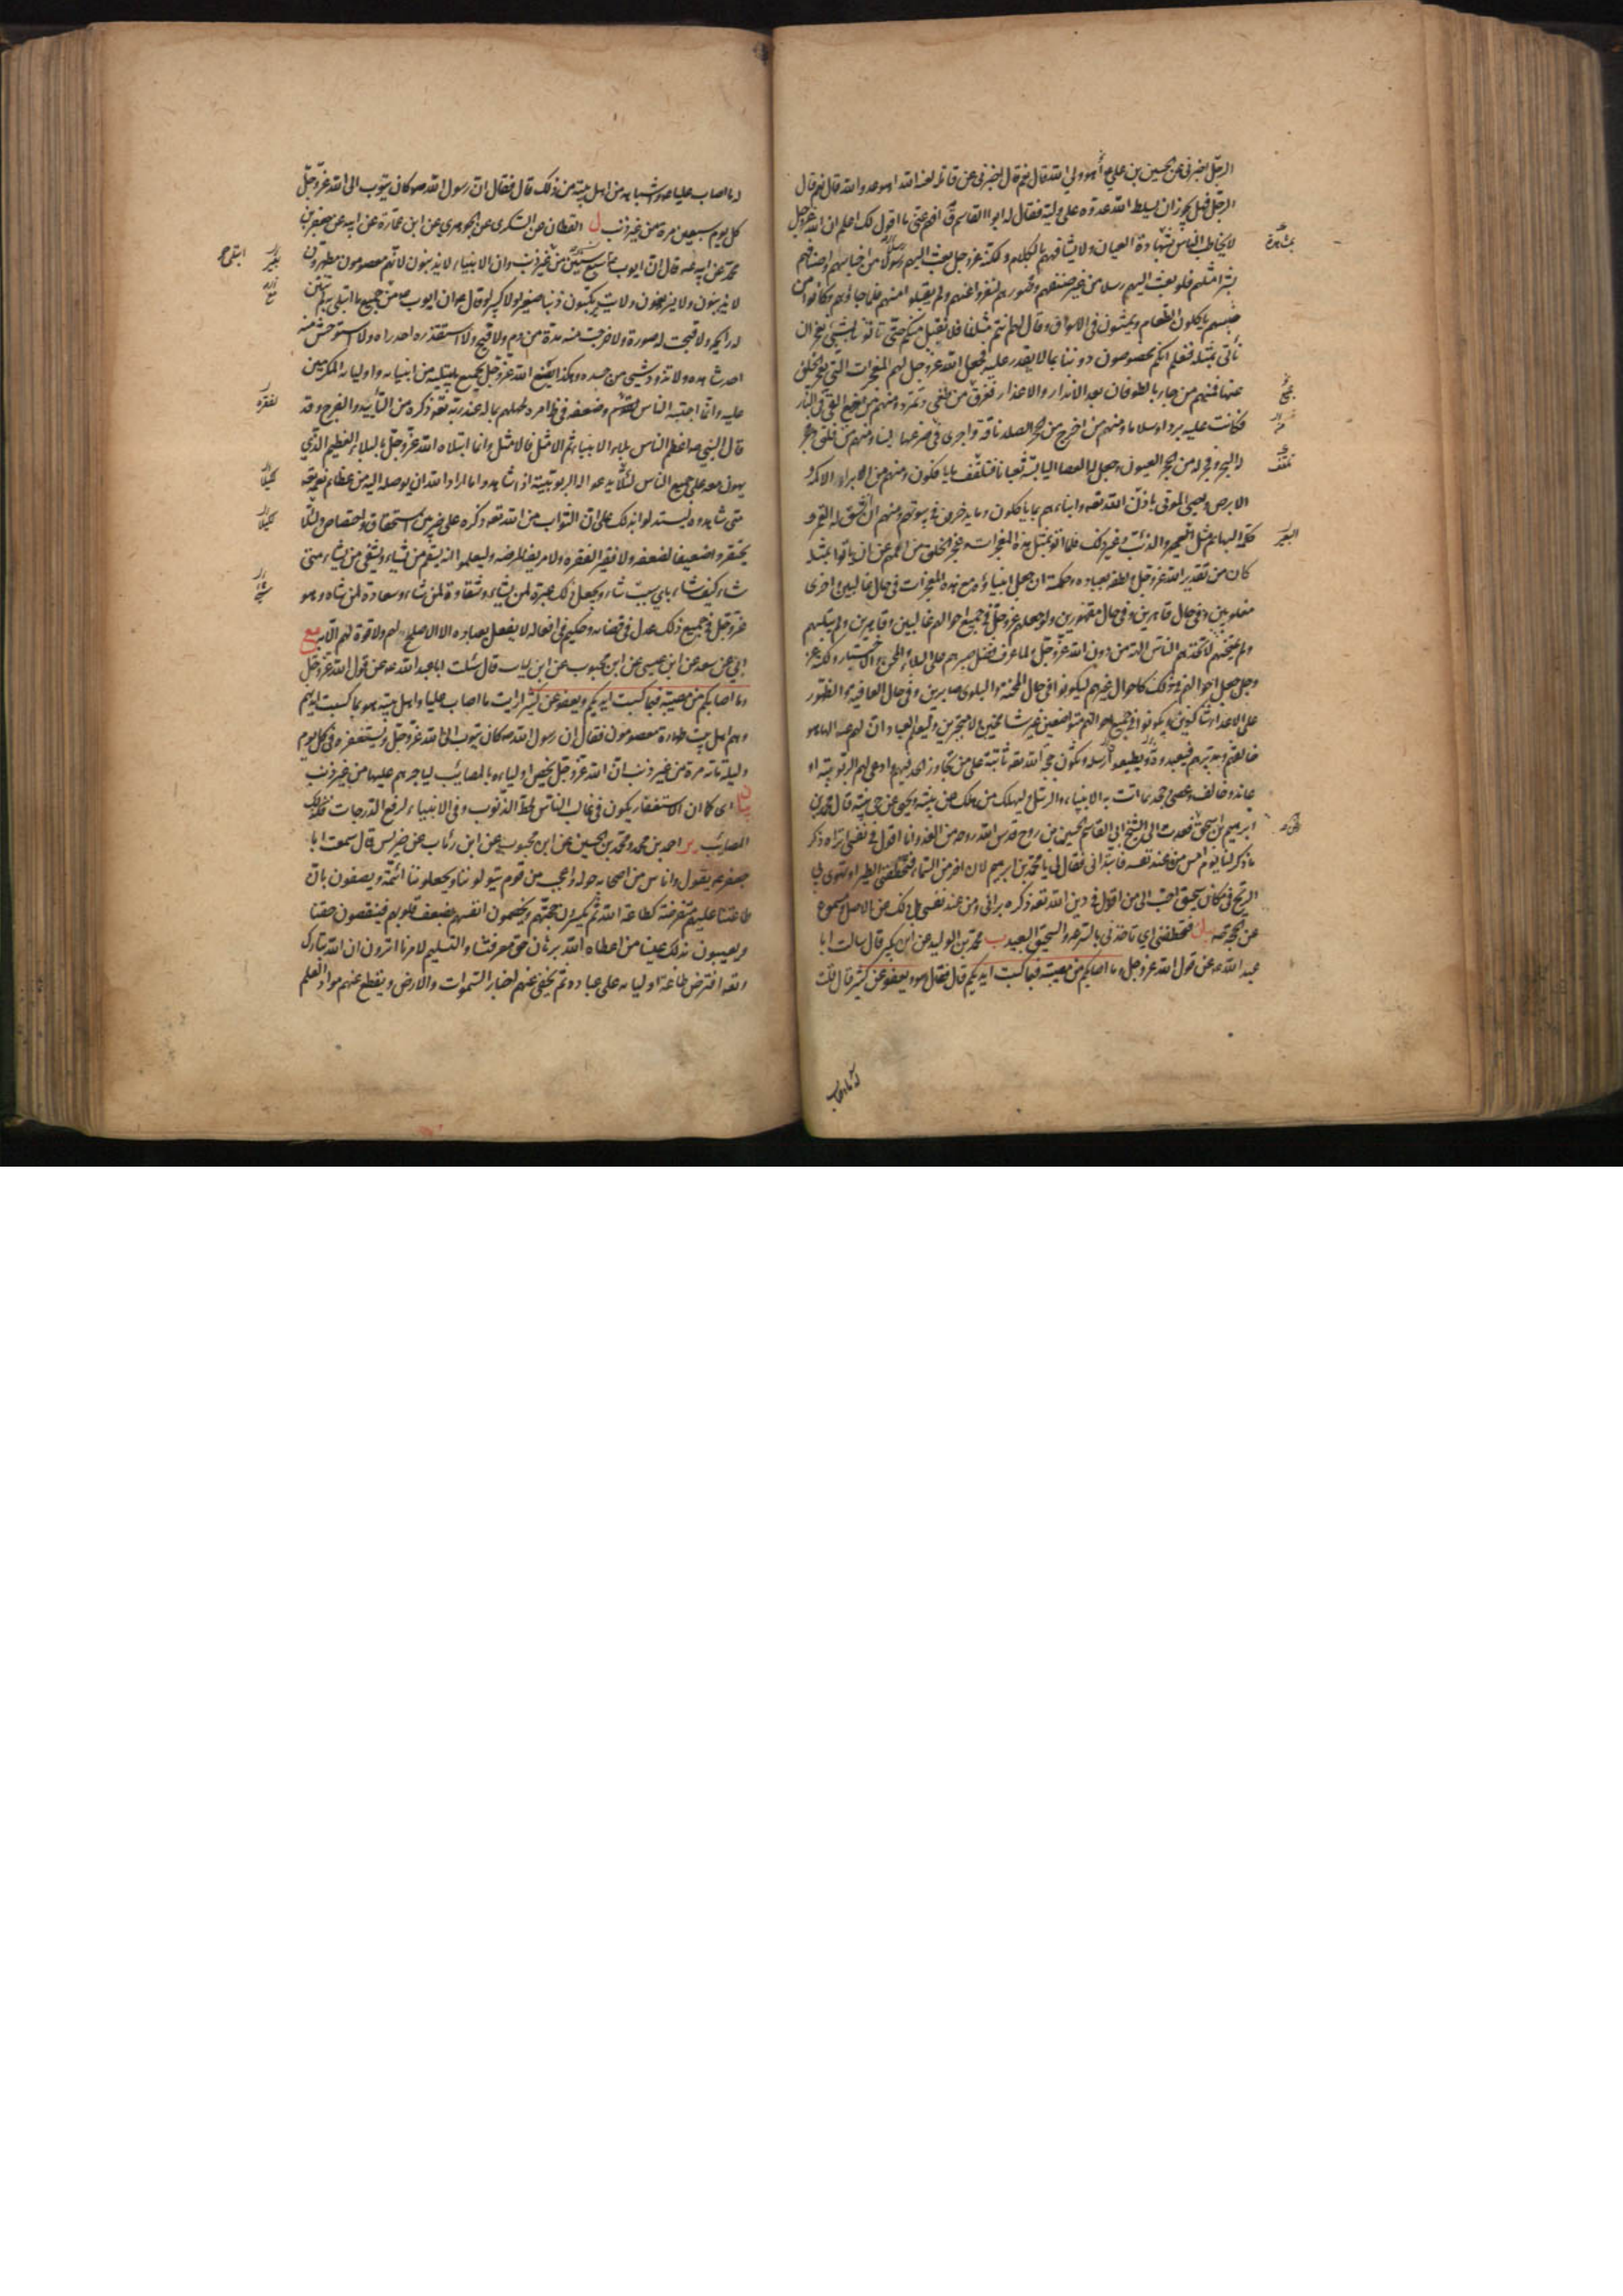 الرجل اخبرني عن الحسين بن علي ع أهو ولي الله قال نعم قال اخبرني عن قاتله لعنه الله اهو عدو الله قال نعم قال
الرجل فهل يجوز ان يسلط الله عدوه على وليه فقال له ابو القاسم ق افهم عني ما اقول لك اعلم ان الله عز وجل
لا يخاطب الناس بشهادة العيان ولا يشافههم بالكلام ولكنه عز وجل بعث اليهم رسولا من اجناسهم واصنافهم
بشرا مثلهم فلو بعث اليهم رسلا من غير صنفهم وصورهم لنفروا عنهم ولم يقبلوا منهم فلما جاؤهم وكانوا من
جنسهم ياكلون الطعام ويمشون في الاسواق وقالوا لهم انتم مثلنا فلا نقبل منكم حتى تاتونا بشيء نعجز ان
نأتي بمثله فنعلم انكم مخصوصون دوننا بما لا نقدر عليه فجعل الله عز وجل لهم المعجزات التي يعجز الخلق
عنها فمنهم من جاء بالطوفان بعد الانذار والاعذار فغرق من طغى وتمرد ومنهم من القي في النار
فكانت عليه بردا وسلاما ومنهم من اخرج من الحجر الصلد ناقة واجرى في ضرعها لبنا ومنهم من فلق
له البحر وفجر له من الحجر العيون وجعل له العصا اليابسة ثعبانا فتلقف ما يافكون ومنهم من ابراء الاكمه و
الابرص واحيى الموتى باذن الله تعه وانبأهم بما ياكلون وما يدخرون في بيوتهم ومنهم من انشق له القمر و
كلمه البهائم مثل البعير والذئب وغير ذلك فلما اتوا بمثل هذه المعجزات وعجز الخلق من اممهم عن ان ياتوا بمثله
كان من تقدير الله عز وجل ولطفه بعباده وحكمته ان جعل انبياءه مع هذه المعجزات في حال غالبين واخرى
مغلوبين وفي حال قاهرين وفي حال مقهورين ولو جعلهم عز وجل في جميع احوالهم غالبين وقاهرين ولم يبتلهم
ولم يمتحنهم لاتخذهم الناس الهة من دون الله عز وجل ولما عرف فضل صبرهم على البلاء والمحن والاختبار ولكنه عز
وجل جعل احوالهم في ذلك كاحوال غيرهم ليكونوا في حال المحنة والبلوى صابرين وفي حال العافية والظهور
على الاعداء شاكرين ويكونوا في جميع احوالهم متواضعين غير شامخين ولا متجبرين وليعلم العباد ان لهم ع الها هو
خالقهم ومدبرهم فيعبدوه ويطيعوا رسله وتكون حجة الله تعه ثابتة على من تجاوز الحد فيهم وادعى لهم الربوبية او
عاند وخالف وعصى وجحد بما اتت به الانبياء والرسل ليهلك من هلك عن بينة ويحيى من حي عن بينة قال محمد بن
ابرهيم بن اسحق فعدت الى الشيخ ابي القاسم الحسين بن روح قدس الله روحه من الغد وانا اقول في نفسي اتراه ذكر
ما ذكر لنا يوم امس من عند نفسه فابتدأني فقال لي يا محمد بن ابرهيم لان اخر من السماء فتخطفني الطير او تهوي بي
الريح في مكان سحيق احب الي من ان اقول في دين الله تعه ذكره برأيي ومن عند نفسي بل ذلك عن الاصل ومسموع
عن الحجة صه بيان فتخطفني اي تاخذني بالسرعة والسحيق البعيد ب محمد بن الوليد عن ابن بكير قال سالت ابا
عبد الله ع عن قول الله عز وجل وما اصابكم من مصيبة فبما كسبت ايديكم قال فقال هو ويعفو عن كثير قال قلت
له ما اصاب
له ما اصاب عليا ع واشباهه من اهل بيته من ذلك قال فقال ان رسول الله ص كان يتوب الى الله عز وجل
كل يوم سبعين مرة من غير ذنب ل القطان عن السكري عن الجوهري عن ابن عمارة عن ابيه عن جعفر بن
محمد عن ابيه ع قال ان ايوب ع ابتلي سبع سنين من غير ذنب وان الانبياء لا يذنبون لانهم معصومون مطهرون
لا يذنبون ولا يزيغون ولا يرتكبون ذنبا صغيرا ولا كبيرا وقال ع ان ايوب ع من جميع ما ابتلي به لم تنتن
له رائحة ولا قبحت له صورة ولا خرجت منه مدة من دم ولا قيح ولا استقذره احد راه ولا استوحش منه
احد شاهده ولا تدود شيء من جسده وهكذا يصنع الله عز وجل بجميع من يبتليه من انبيائه واوليائه المكرمين
عليه وانما اجتنبه الناس لفقره وضعفه في ظاهر امره لجهلهم بما له عند ربه تعه ذكره من التأييد والفرج وقد
قال النبي ص اعظم الناس بلاء الانبياء ثم الامثل فالامثل وانما ابتلاه الله عز وجل بالبلاء العظيم الذي
يهون معه على جميع الناس لئلا يدعوا له الربوبية اذا شاهدوا ما اراد الله ان يوصله اليه من عظائم نعمه
متى شاهدوه ليستدلوا بذلك على ان الثواب من الله تعه ذكره على ضربين استحقاق واختصاص ولئلا
يحتقروا ضعيفا لضعفه ولا فقيرا لفقره ولا مريضا لمرضه وليعلموا انه يسقم من يشاء ويشفي من يشاء متى
شاء كيف شاء باي سبب شاء ويجعل ذلك عبرة لمن يشاء وشقاوة لمن شاء وسعادة لمن شاء وهو
عز وجل في جميع ذلك عدل في قضائه وحكيم في افعاله لا يفعل بعباده الا الاصلح لهم ولا قوة لهم الا به مع
ابي عن سعد عن ابن عيسى عن ابن محبوب عن ابن رئاب قال سئلت ابا عبد الله ع عن قول الله عز وجل
وما اصابكم من مصيبة فبما كسبت ايديكم ويعفو عن كثير ارايت ما اصاب عليا واهل بيته هو بما كسبت ايديهم
وهم اهل بيت طهارة معصومون فقال ان رسول الله ص كان يتوب الى الله عز وجل ويستغفره في كل يوم
وليلة مائة مرة من غير ذنب ان الله عز وجل يخص اولياءه بالمصائب لياجرهم عليها من غير ذنب
بيان اي كما ان الاستغفار يكون في غالب الناس لحط الذنوب وفي الانبياء لرفع الدرجات فكذلك
المصائب ير احمد بن محمد ومحمد بن الحسين عن ابن محبوب عن ابن رئاب عن ضريس قال سمعت ابا
جعفر ع يقول واناس من اصحابه حوله واعجب من قوم يتولوننا ويجعلوننا ائمة ويصفون بان
طاعتنا عليهم مفترضة كطاعة الله ثم يكسرون حجتهم ويخصمون انفسهم بضعف قلوبهم فينقصون حقنا
ويعيبون ذلك علينا من اعطاه الله برهان حق معرفتنا والتسليم لامرنا اترون ان الله تبارك
وتعه افترض طاعة اوليائه على عباده ثم يخفي عنهم اخبار السموات والارض ويقطع عنهم مواد العلم